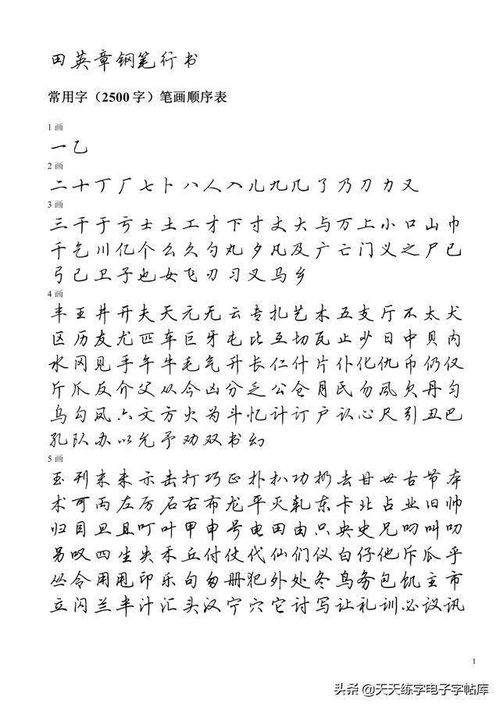 田英章钢笔行书
常用字（2500字）笔画顺序表
1画
一乙
2画
二十丁厂七卜八人入儿九几了乃刀力又
3画
三干于亏士土工才下寸丈大与万上小口山巾
千乞川亿个么久勺丸夕凡及广亡门义之尸已
弓己卫子也女飞刃习叉马乡
4画
丰王井开夫天元无云专扎艺木五支厅不太犬
区历友尤匹车巨牙屯比互切瓦止少日中贝内
水冈见手午牛毛气升长仁什片仆化仇币仍仅
斤爪反介父从今凶分乏公仓月氏勿风欠丹匀
乌勾凤六文方火为斗忆计订户认心尺引丑巴
孔队办以允予劝双书幻
5画
玉刊未末示击打巧正扑扒功扔去甘世古节本
术可丙左厉石右布龙平灭轧东卡北占业旧帅
归目旦且叮叶甲申号电田由只央史兄叼叫叨
另叹四生失禾丘付仗代仙们仪白仔他斥瓜乎
丛令用甩印乐句匆册犯外处冬鸟务包饥主市
立闪兰半汁汇头汉宁穴它讨写让礼训必议讯
1
头条@天天练字电子字帖库